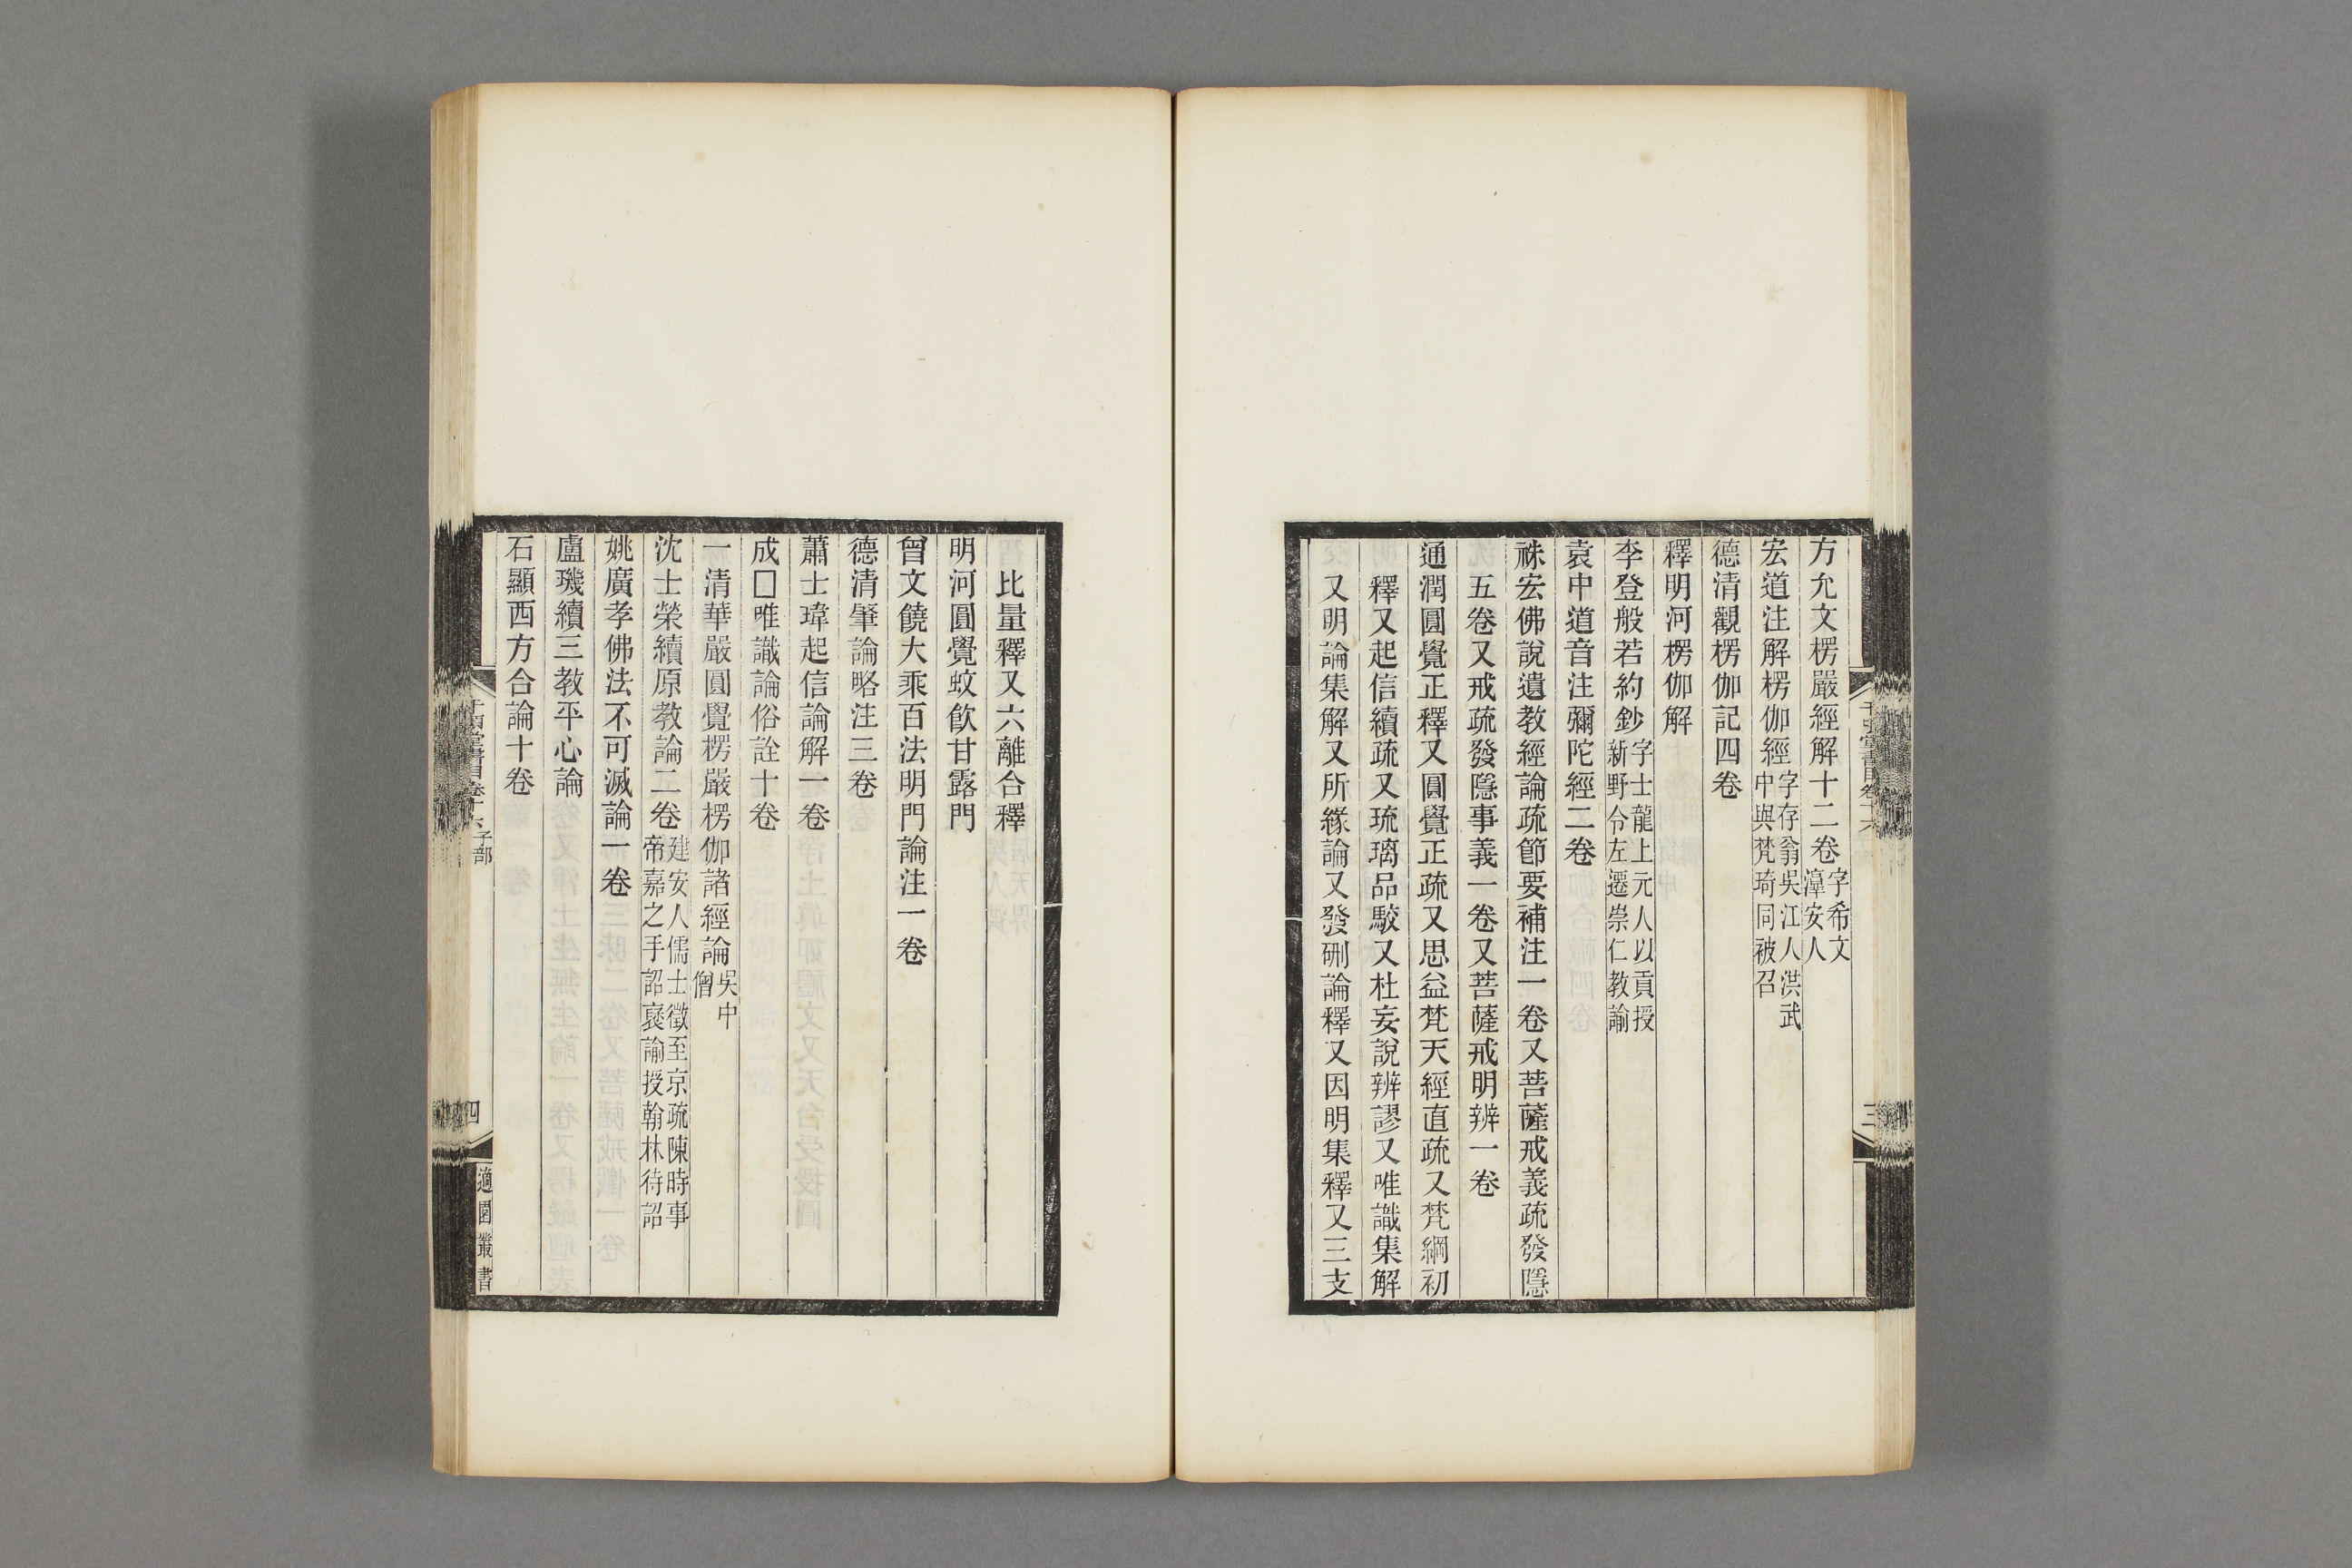 方允文楞嚴經解十二卷字希文漳安人
宏道注解楞伽經字存翁吳江人洪武中與梵琦同被召
德清觀楞伽記四卷
釋明河楞伽解
李登般若約鈔字士龍上元人以貢授新野令左遷崇仁教諭
袁中道音注彌陀經二卷
祩宏佛說遺教經論疏節要補注一卷又菩薩戒義疏發隱
五卷又戒疏發隱事義一卷又菩薩戒明辨一卷
通潤圓覺正釋又圓覺正疏又思益梵天經直疏又梵綱初
釋又起信續疏又琉璃品駮又杜妄說辨謬又唯識集解
又明論集解又所緣論又發硎論釋又因明集釋又三支
比量釋又六離合釋
明河圓覺蚊飮甘露門
曾文饒大乘百法明門論注一卷
德清肇論略注三卷
蕭士瑋起信論解一卷
成□唯識論俗詮十卷
一清華嚴圓覺楞嚴楞伽諸經論吳中僧
沈士榮續原教論二卷建安人儒士徵至京疏陳時事帝嘉之手詔褒諭授翰林待詔
姚廣孝佛法不可滅論一卷
盧璣續三教平心論
石顯西方合論十卷
千頃堂書目卷十六子部
四
適園叢書